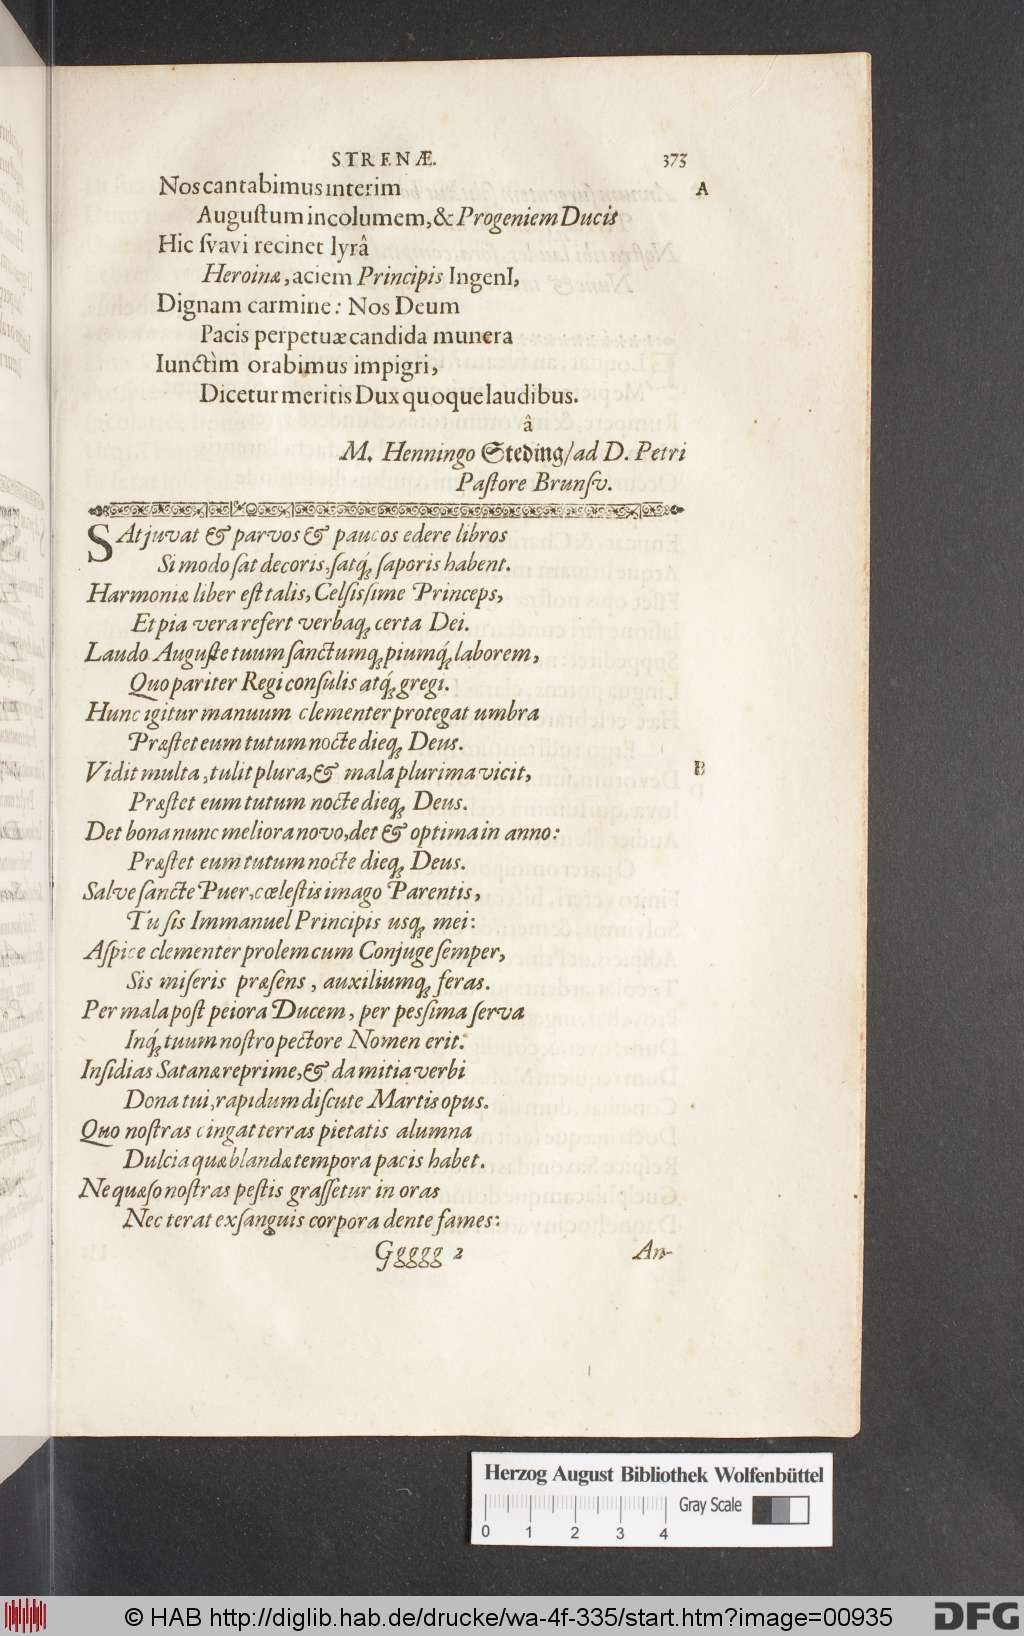 STRENÆ. 373
Nos cantabimus interim A
Auguſtum incolumem, & Progeniem Ducis
Hic ſvavi recinet lyrâ
Heroinæ, aciem Principis IngenI,
Dignam carmine: Nos Deum
Pacis perpetuæ candida munera
Iunctìm orabimus impigri,
Dicetur meritis Dux quoque laudibus.
â
M. Henningo Steding/ ad D. Petri
Paſtore Brunſv.
SAt juvat & parvos & paucos edere libros
Si modo ſat decoris, ſatq́ꝫ ſaporis habent.
Harmoniæ liber eſt talis, Celſisſime Princeps,
Et pia vera refert verbaqꝫ certa Dei.
Laudo Auguſte tuum ſanctumqꝫ piumq́ꝫ laborem,
Quo pariter Regi conſulis atq́ꝫ gregi.
Hunc igitur manuum clementer protegat umbra
Præſtet eum tutum nocte dieqꝫ Deus.
Vidit multa, tulit plura, & mala plurima vicit, B
Præſtet eum tutum nocte dieqꝫ Deus.
Det bona nunc meliora novo, det & optima in anno:
Præſtet eum tutum nocte dieqꝫ Deus.
Salve ſancte Puer, cœleſtis imago Parentis,
Tu ſis Immanuel Principis usqꝫ mei:
Aſpice clementer prolem cum Conjuge ſemper,
Sis miſeris præſens, auxiliumqꝫ feras.
Per mala poſt peiora Ducem, per pesſima ſerva
Inq́ꝫ tuum noſtro pectore Nomen erit.
Inſidias Satanæ reprime, & da mitia verbi
Dona tui, rapidum diſcute Martis opus.
Quo noſtras cingat terras pietatis alumna
Dulcia quæ blandæ tempora pacis habet.
Ne quæſo noſtras peſtis graſſetur in oras
Nec terat exſanguis corpora dente fames:
Ggggg 2 An-
Herzog August Bibliothek Wolfenbüttel
Gray Scale
0 1 2 3 4
© HAB http://diglib.hab.de/drucke/wa-4f-335/start.htm?image=00935 DFG